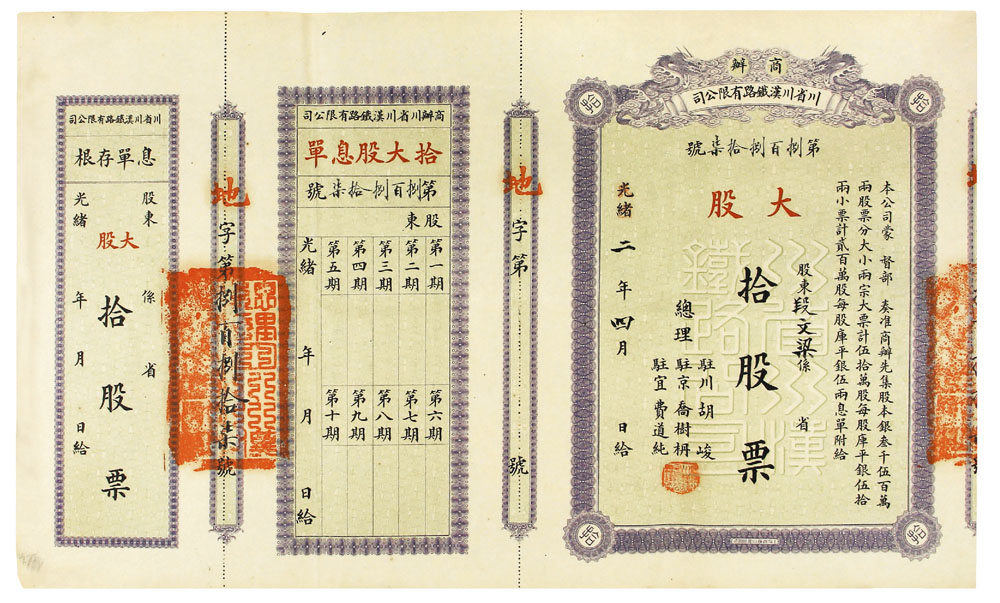 商辦
川省川漢鐵路有限公司
第捌百捌拾柒號
本公司蒙 督部 奏准商辦先集股本銀叁千伍百萬
兩股票分大小兩宗大票計伍拾萬股每股庫平銀伍拾
兩小票計貳百萬股每股庫平銀伍兩息單附給
大股
股東段文梁係 省
拾股票
總理
駐川胡峻
駐京喬樹枬
駐宜費道純
光緒二年四月 日給
川省川漢
鐵路公司
地字第 號
商辦川省川漢鐵路有限公司
拾大股息單
第捌百捌拾柒號
股東
第一期
第二期
第三期
第四期
第五期
第六期
第七期
第八期
第九期
第十期
光緒 年 月 日給
地字第捌百捌拾柒號
川省川漢鐵路有限公司
息單存根
股東 係 省
大股
拾股票
光緒 年 月 日給